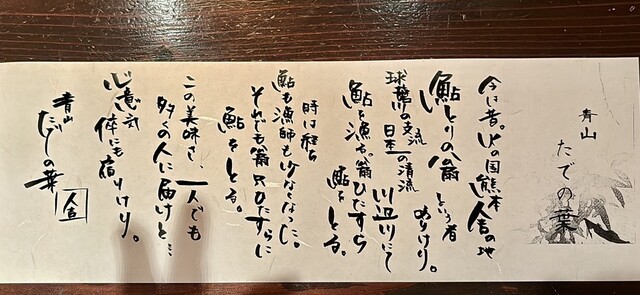 青山
たでの葉
今は昔。火の国熊本人吉の地
鮎とりの翁という者ありけり。
球磨川の支流
日本一の清流
川辺川にて
鮎を漁る。翁ひたすら
鮎をとる。
時は経ち
鮎も漁師も少なくなった。
それでも翁只ひたすらに
鮎をとる。
この美味さ、一人でも
多くの人に届けと…
心意気
体にも宿りけり。
青山
たでの葉
人吉